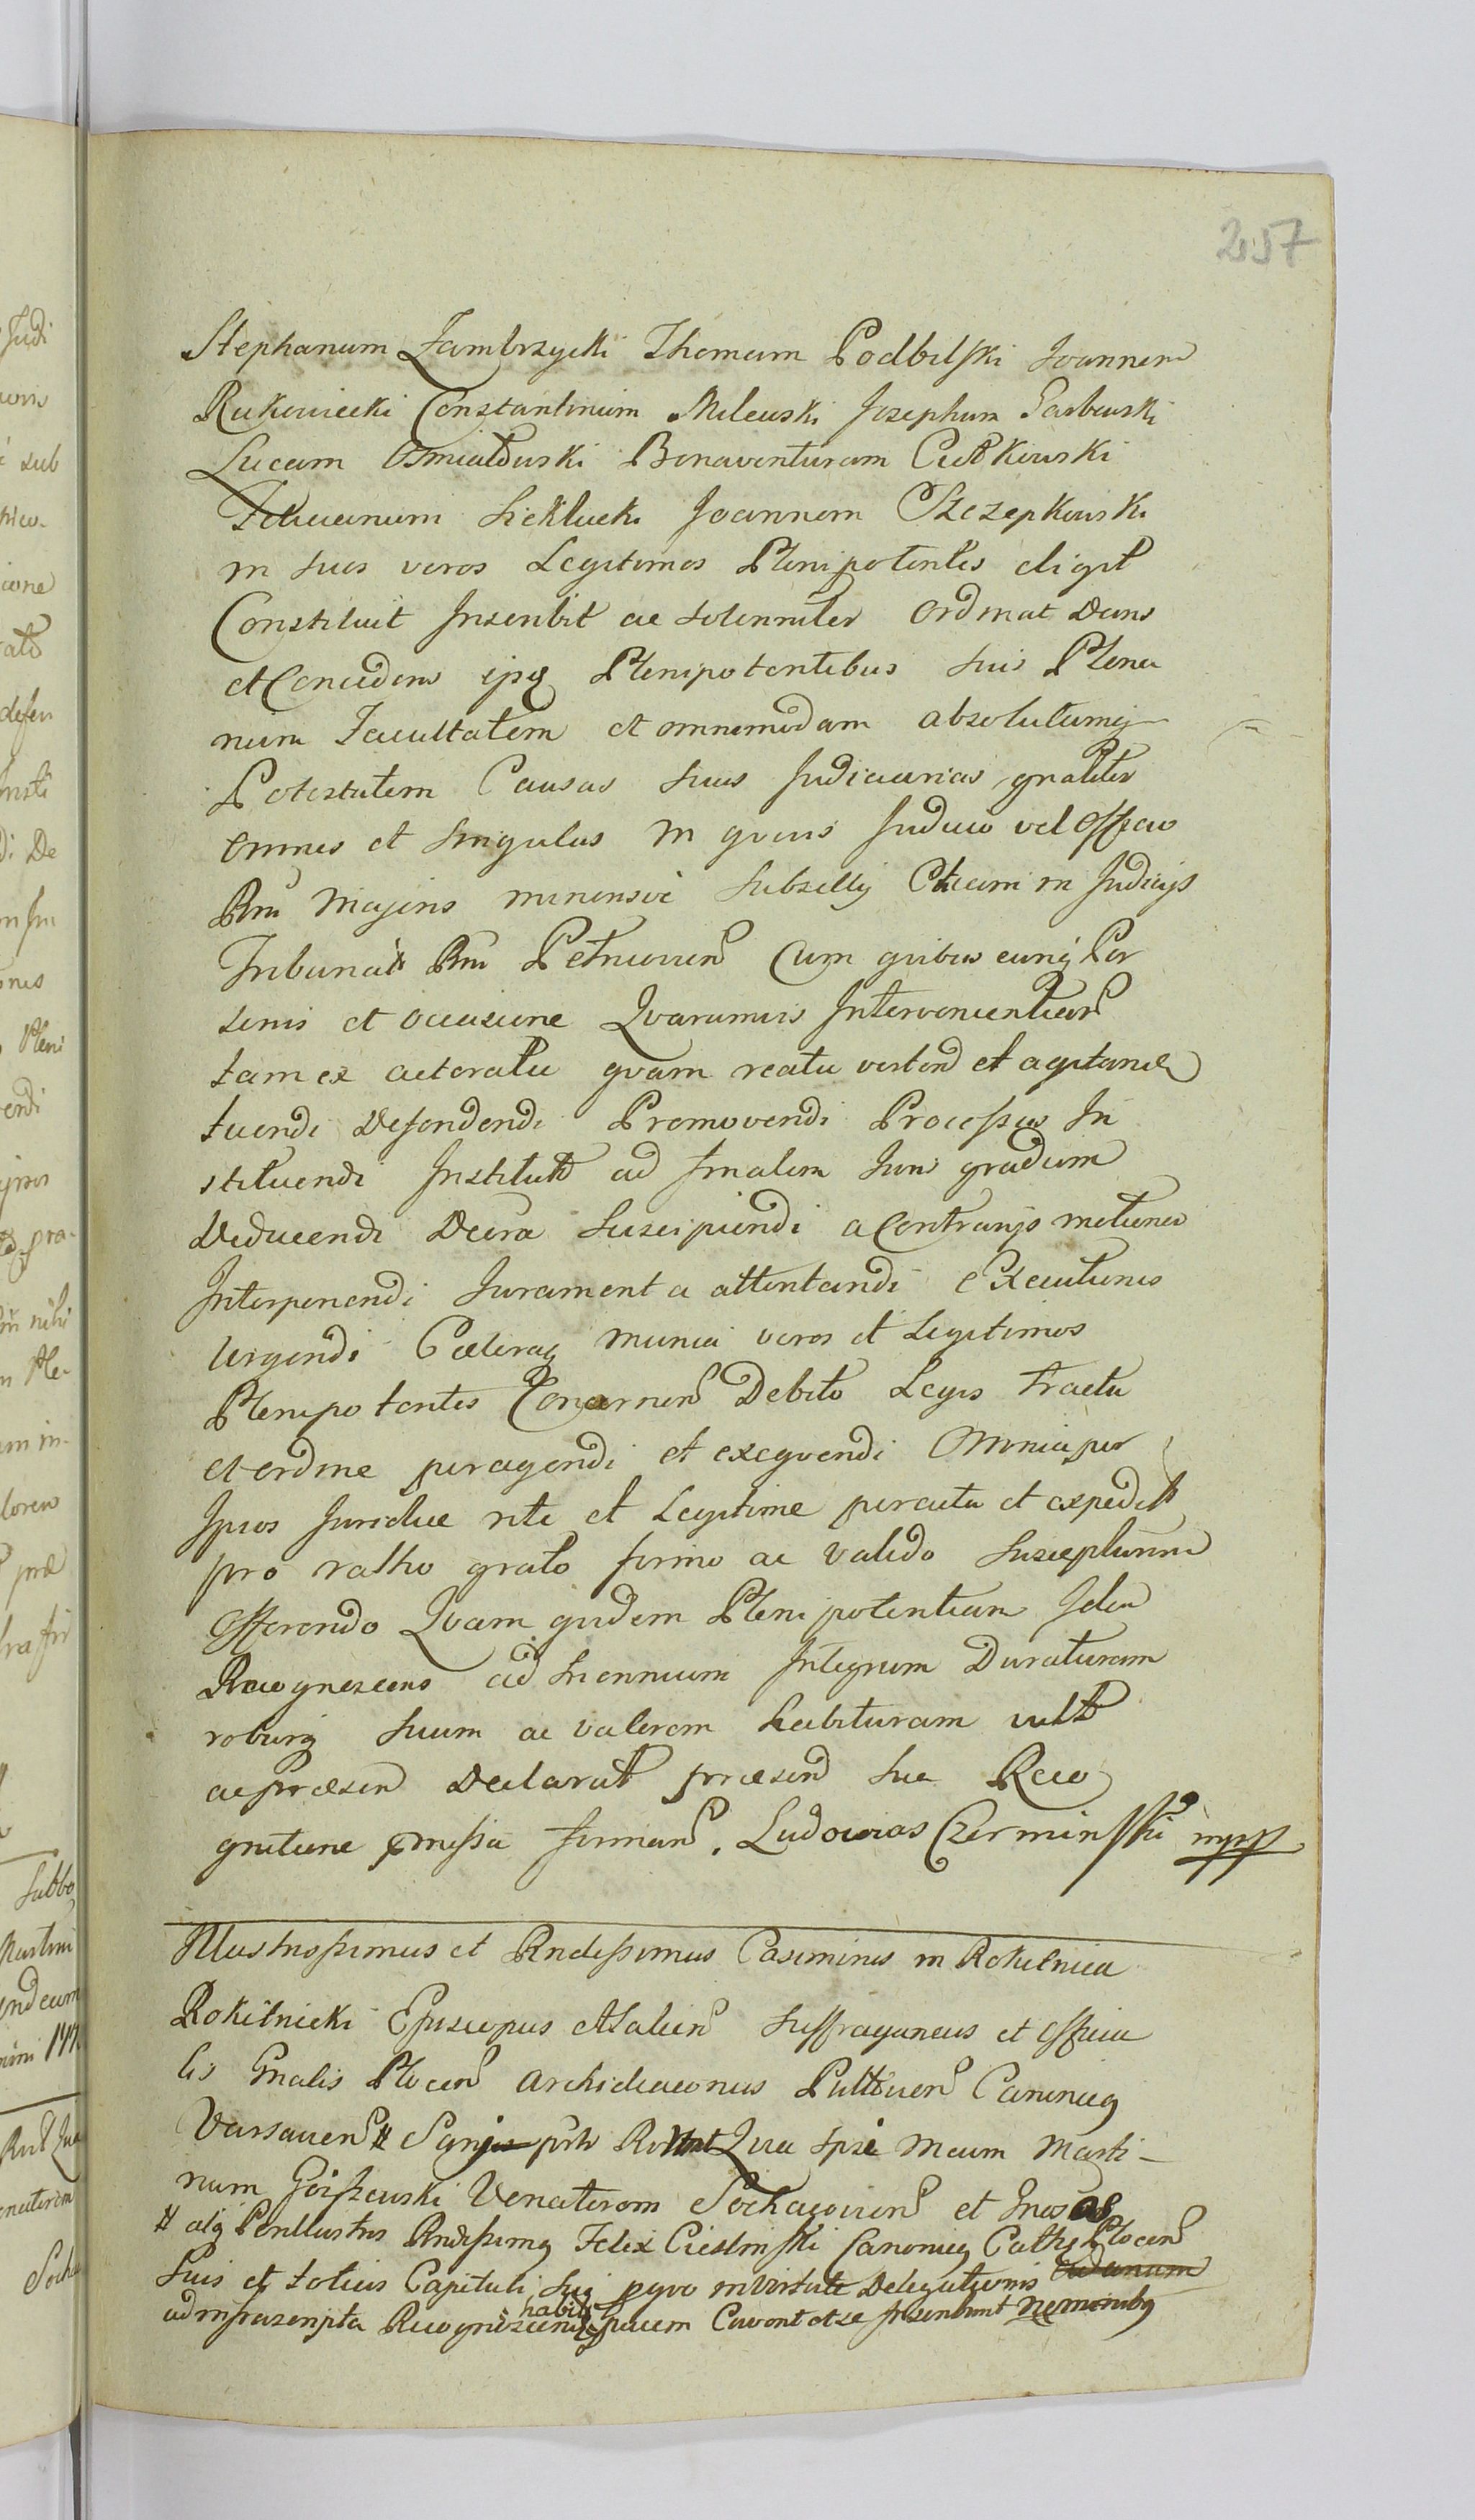 257
Stephanum Zambrzycki Thomam Podbilski Joannem
Rukowiecki Constantinum Milewski Josephum Garbowski
Lucam Osmiałowski Bonaventuram Cutkowski
Felicianum Siekłucki Joannem Szczepkowski
in suos veros Legitimos Plenipotentes eligit
Constituit Inscribit ac solenniter ordinat Dans
et Concedens ipsq Plenipotentibus suis Plena
riam Facultatem et omnimodam absolutamq
Potestatem Causas suas Judiciarias gnaliter
omnes et singulas in quovis Judicio vel Officio
Rni Majoris minorisve Subsellij Etiam in Judicijs
Tribunalis Rni Petricovien Cum quibus cunq Per
sonis et occasione Quarumvis Intervenientiarum
tam ex actoratu quam reatu verten et agitand
tuendi Defendendi Promovendi Processus In
stituendi Institut ad finalem Juris gradum
Deducendi Decra Suscipiendi a Contrarijs motiones
Interponendi Juramenta attentandi Executiones
urgendi Caeteraq munia veros et Legitimos
Plenipotentes Concernen Debito Legis tractu
et ordine peragendi et exequendi Omnia per
Ipsos Juridice rite et Legitime peracta et expedit
pro ratho grato firmo ac valido Suscepturum
offerendo Quam quidem Plenipotentiam Idem
Recognoscens ad triennium Integrum Duraturam
roburq suum ac valorem habituram vult
ac praesen Declarat praesen sua Reco
gnitione pmissa firman. Ludowicus Czerminski mpp
Illustrissimus et Rndissimus Casimirus in Rokitnica
Rokitnicki Episcopus Atalien Suffraganeus et Officia
lis Gnalis Plocen Archidiaconus Pultoven Canonicq
Varsavien # Sanjus prts Quia Ipse Mcum Marti-
num Goiszewski Venatorem Sochacovien et Gnosos
# atq Perillustris Rndissimq Felix Ciesliński Canonicq Cathq Plocen
Suis et totius Capituli sui pgvo in Virtute Delegationis
ad infrascripta Recognoscend habitq pacem Cavent et se Inscribunt Nominibq